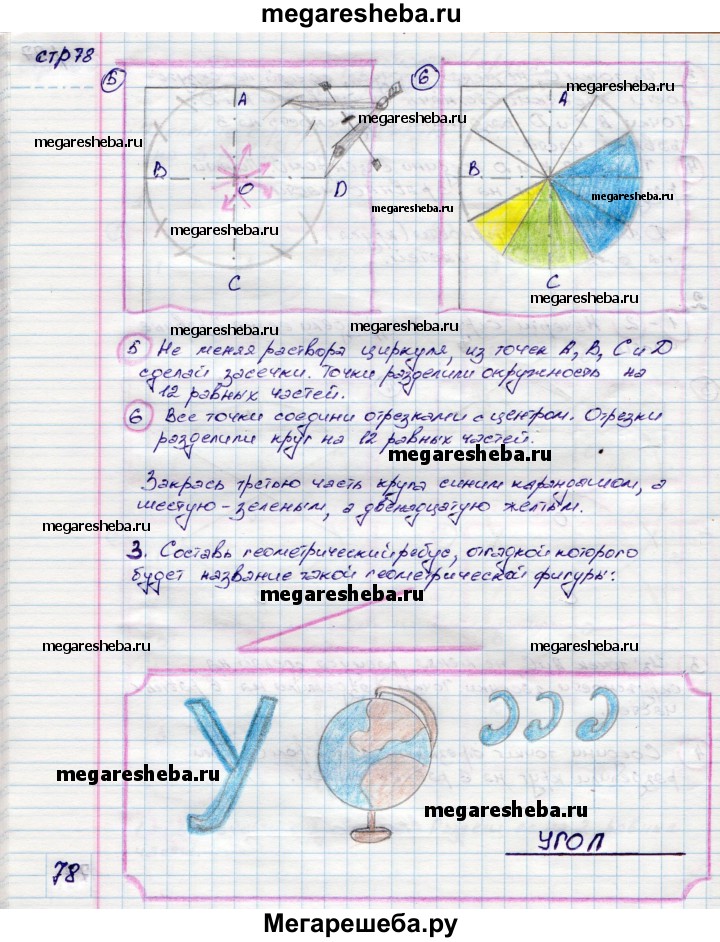 megaresheba.ru
стр 78
5
6
A
B
O
D
C
A
B
C
megaresheba.ru
megaresheba.ru
megaresheba.ru
megaresheba.ru
megaresheba.ru
megaresheba.ru
megaresheba.ru
megaresheba.ru
megaresheba.ru
5 Не меняя раствора циркуля, из точек A, B, C и D
сделай засечки. Точки разделили окружность на
12 равных частей.
6 Все точки соедини отрезками с центром. Отрезки
разделили круг на 12 равных частей.
megaresheba.ru
Закрась третью часть круга синим карандашом, а
шестую - зеленым, а двенадцатую желтым.
megaresheba.ru
3. Составь геометрический ребус, отгадкой которого
будет название такой геометрической фигуры:
megaresheba.ru
megaresheba.ru
megaresheba.ru
У
, , ,
megaresheba.ru
megaresheba.ru
УГОЛ
78
Мегарешеба.ру